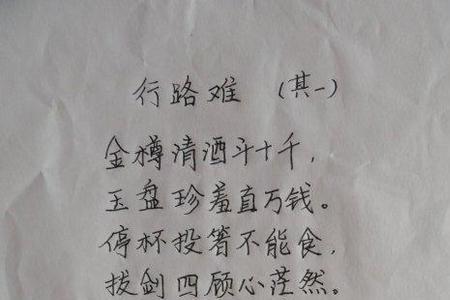 行路难 (其一)
金樽清酒斗十千,
玉盘珍羞直万钱。
停杯投箸不能食,
拔剑四顾心茫然。